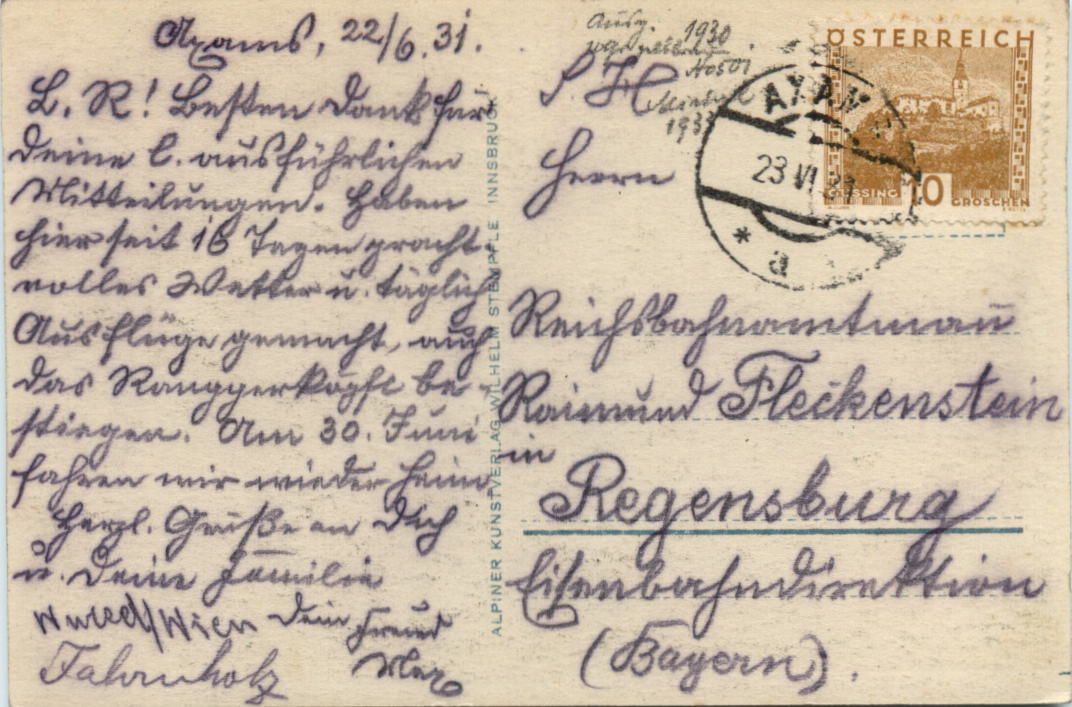 Axams, 22/6.31.
L. R! Besten Dank für
Deine l. ausführlichen
Mitteilungen. Haben
hier seit 16 Tagen pracht-
volles Wetter u. täglich
Ausflüge gemacht, auch
das Ranggerköpfl be-
stiegen. Am 30. Juni
fahren wir wieder heim
Herzl. Grüße an Dich
u. Deine Familie
Dein Freund
Wien
ALPINER KUNSTVERLAG WILHELM STEMPFLE INNSBRUCK
1930
S. H.
193
Herrn
Reichsbahnamtmañ
Raimund Fleckenstein
in
Regensburg
Eisenbahndirektion
(Bayern).
ÖSTERREICH
GÜSSING 10 GROSCHEN
AXAMS
23 VI 31
* a